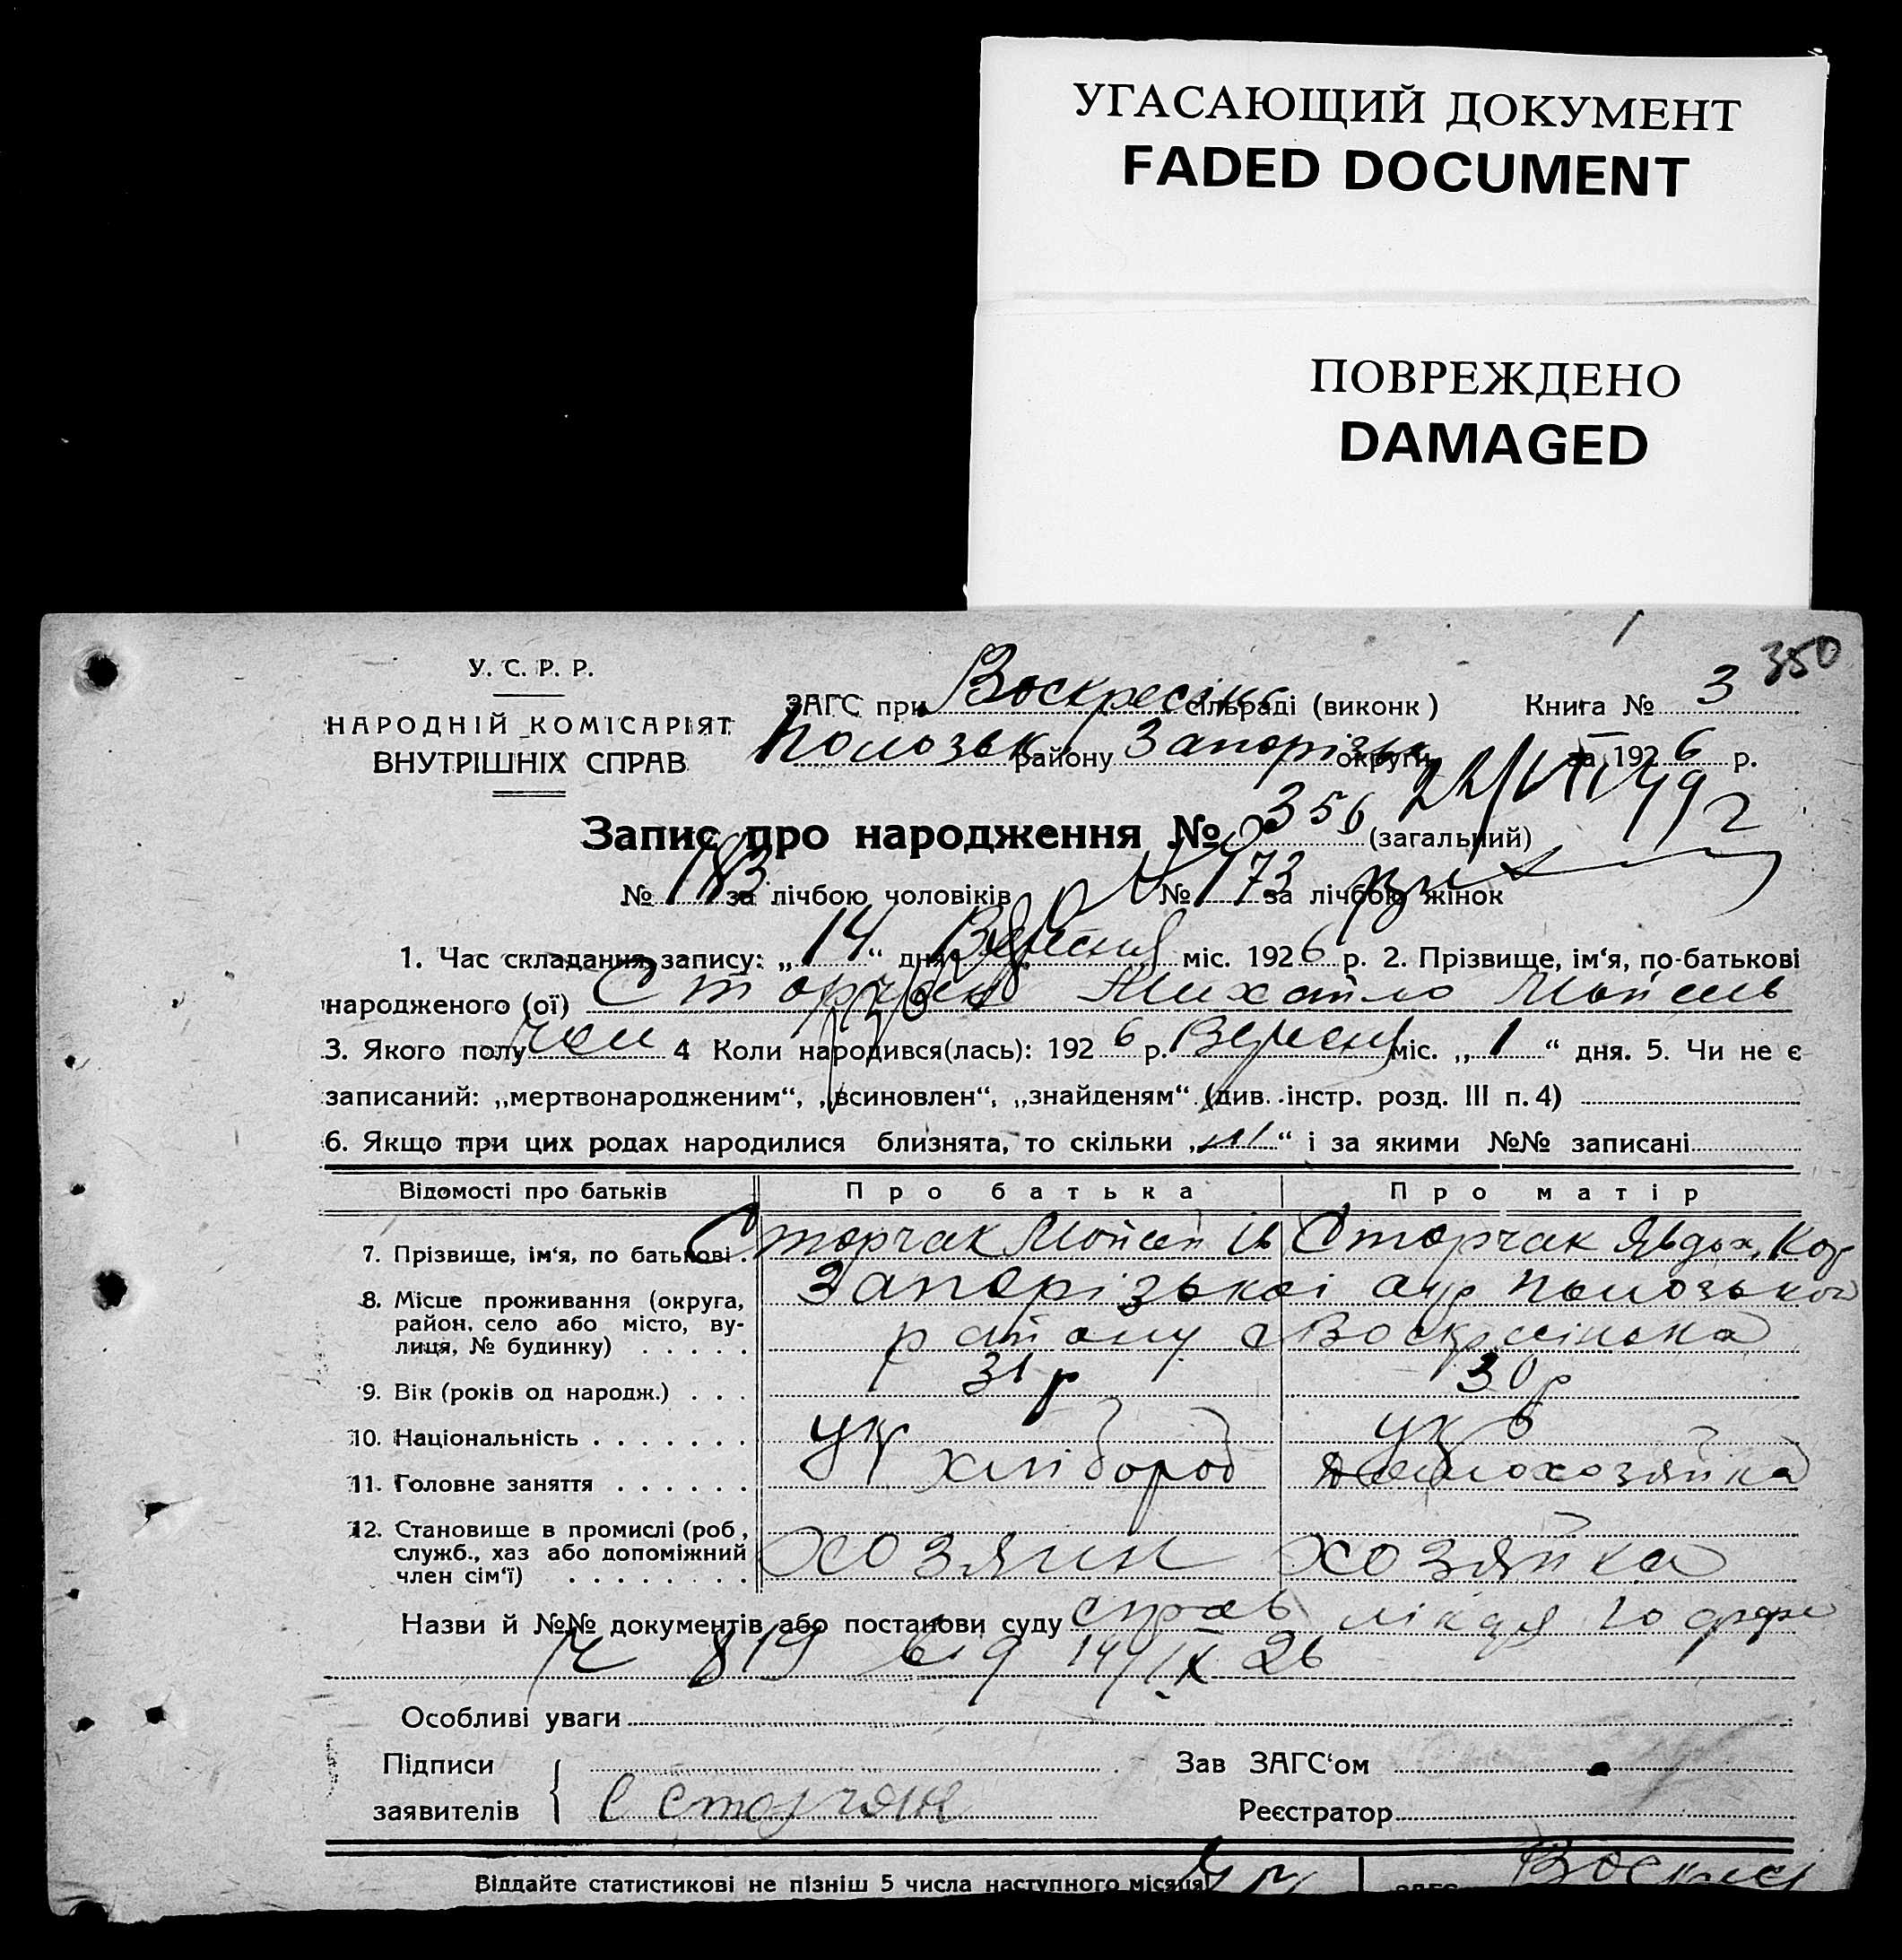 УГАСАЮЩИЙ ДОКУМЕНТ
FADED DOCUMENT
ПОВРЕЖДЕНО
DAMAGED
350
У. С. Р. Р.
НАРОДНІЙ КОМІСАРІЯТ
ВНУТРІШНІХ СПРАВ
ЗАГС при Воскресінс сільраді (виконк) Книга № 3
Полозьк району Запорізьк округи за 1926 р.
Запис про народження № 356 (загальний)
№ 183 за лічбою чоловіків № 173 за лічбою жінок
1. Час складання запису: „14“ дня Вересня міс. 1926 р. 2. Прізвище, ім‘я, по-батькові
народженого (ої) Сторчак Михайло Мойсеїв
3. Якого полу чол 4 Коли народився(лась): 1926 р. Вересня міс. „1“ дня. 5. Чи не є
записаний: „мертвонародженим“, „всиновлен“, „знайденям“ (див. інстр. розд. III п. 4)
6. Якщо при цих родах народилися близнята, то скільки „ні“ і за якими №№ записані
Відомості про батьків Про батька Про матір
7. Прізвище, ім‘я, по батькові Сторчак Мойсей Ів Сторчак Явдох. Кор
8. Місце проживання (округа, район, село або місто, ву-
лиця, № будинку) Запорізької окр Полозької
району с Воскресінька
9. Вік (років од народж.) 31 р 30 р
10. Національність Укр Укр
11. Головне заняття хлібороб домохозяйка
12. Становище в промислі (роб, служб., хаз або допоміжний
член сім‘ї) хозяин хозяйка
Назви й №№ документів або постанови суду справ лікця
№ 819 від 14/IX 26
Особливі уваги
Підписи Зав ЗАГС‘ом
заявителів Сторчак Реєстратор
Віддайте статистикові не пізніш 5 числа наступного місяця
ЗАГС Воскрес